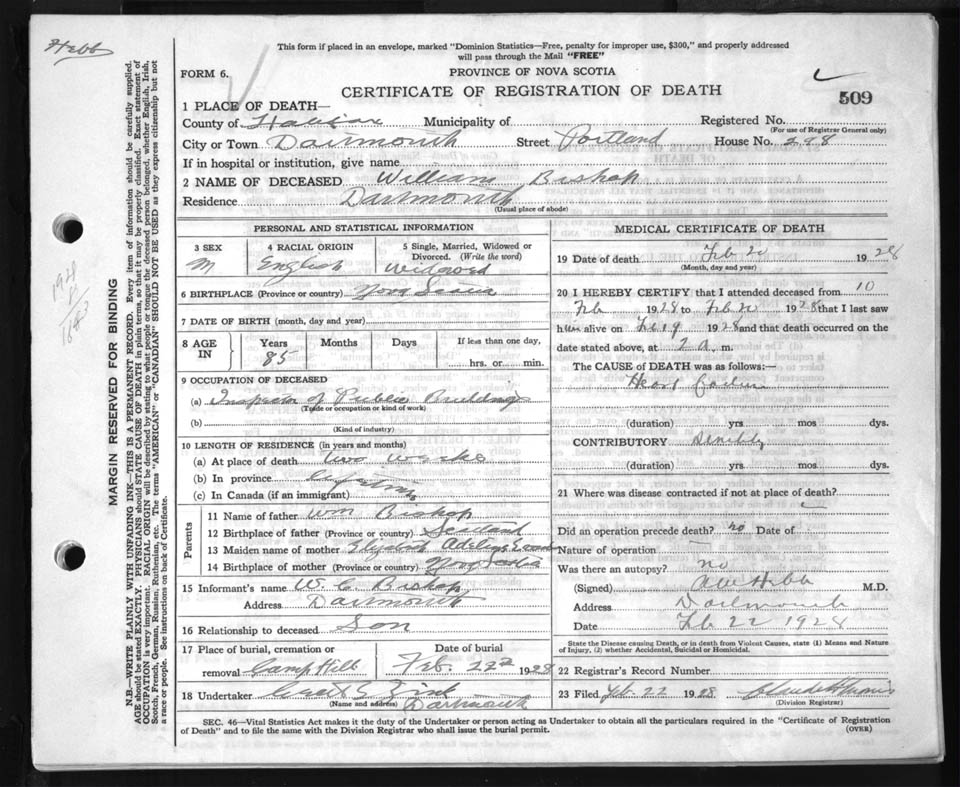 Hebb
This form if placed in an envelope, marked "Dominion Statistics—Free, penalty for improper use, $300," and properly addressed
will pass through the Mail "FREE"
FORM 6.
PROVINCE OF NOVA SCOTIA
CERTIFICATE OF REGISTRATION OF DEATH
509
1 PLACE OF DEATH—
County of Halifax Municipality of Registered No.
(For use of Registrar General only)
City or Town Dartmouth Street Portland House No. 298
If in hospital or institution, give name
2 NAME OF DECEASED William Bishop
Residence Dartmouth
(Usual place of abode)
PERSONAL AND STATISTICAL INFORMATION
3 SEX 4 RACIAL ORIGIN 5 Single, Married, Widowed or
Divorced. (Write the word)
M English Widowed
6 BIRTHPLACE (Province or country) Nova Scotia
7 DATE OF BIRTH (month, day and year)
8 AGE IN Years Months Days If less than one day,
85 hrs. or min.
9 OCCUPATION OF DECEASED
(a) Inspector of Public Buildings
(Trade or occupation or kind of work)
(b)
(Kind of industry)
10 LENGTH OF RESIDENCE (in years and months)
(a) At place of death two weeks
(b) In province Life time
(c) In Canada (if an immigrant)
Parents
11 Name of father Wm Bishop
12 Birthplace of father (Province or country) Scotland
13 Maiden name of mother Elizabeth Adeline
14 Birthplace of mother (Province or country) Nova Scotia
15 Informant's name W. C. Bishop
Address Dartmouth
16 Relationship to deceased Son
17 Place of burial, cremation or Date of burial
removal Camp Hill Feb. 22nd 1928
18 Undertaker Zink
(Name and address) Dartmouth
MEDICAL CERTIFICATE OF DEATH
19 Date of death Feb 20 1928
(Month, day and year)
20 I HEREBY CERTIFY that I attended deceased from 10
Feb 1928 to Feb 20 1928 that I last saw
him alive on Feb 19 1928 and that death occurred on
date stated above, at 2 a. m.
The CAUSE OF DEATH was as follows:—
Heart failure
(duration) yrs mos dys.
CONTRIBUTORY Senility
(duration) yrs mos dys.
21 Where was disease contracted if not at place of death?
Did an operation precede death? no Date of
Nature of operation
Was there an autopsy? no
(Signed) Hebb M.D.
Address Dartmouth
Date Feb 22 1928
State the Disease causing Death, or in death from Violent Causes, state (1) Means and Nature
of Injury, (2) whether Accidental, Suicidal or Homicidal.
22 Registrar's Record Number
23 Filed Feb. 22 1928
(Division Registrar)
SEC. 46—Vital Statistics Act makes it the duty of the Undertaker or person acting as Undertaker to obtain all the particulars required in the "Certificate of Registration
of Death" and to file the same with the Division Registrar who shall issue the burial permit.
(OVER)
MARGIN RESERVED FOR BINDING
N.B.—WRITE PLAINLY WITH UNFADING INK—THIS IS A PERMANENT RECORD. Every item of information should be carefully supplied.
AGE should be stated EXACTLY. PHYSICIANS should STATE CAUSE OF DEATH in plain terms, so that it may be properly classified. Exact statement of
OCCUPATION is very important. RACIAL ORIGIN will be described by stating to what people or tongue the deceased person belonged, whether English, Irish,
Scotch, French, German, Russian, Ruthenian, etc. The terms "AMERICAN" or "CANADIAN" SHOULD NOT BE USED as they express citizenship but not
a race or people. See instructions on back of Certificate.
1928
85
1843